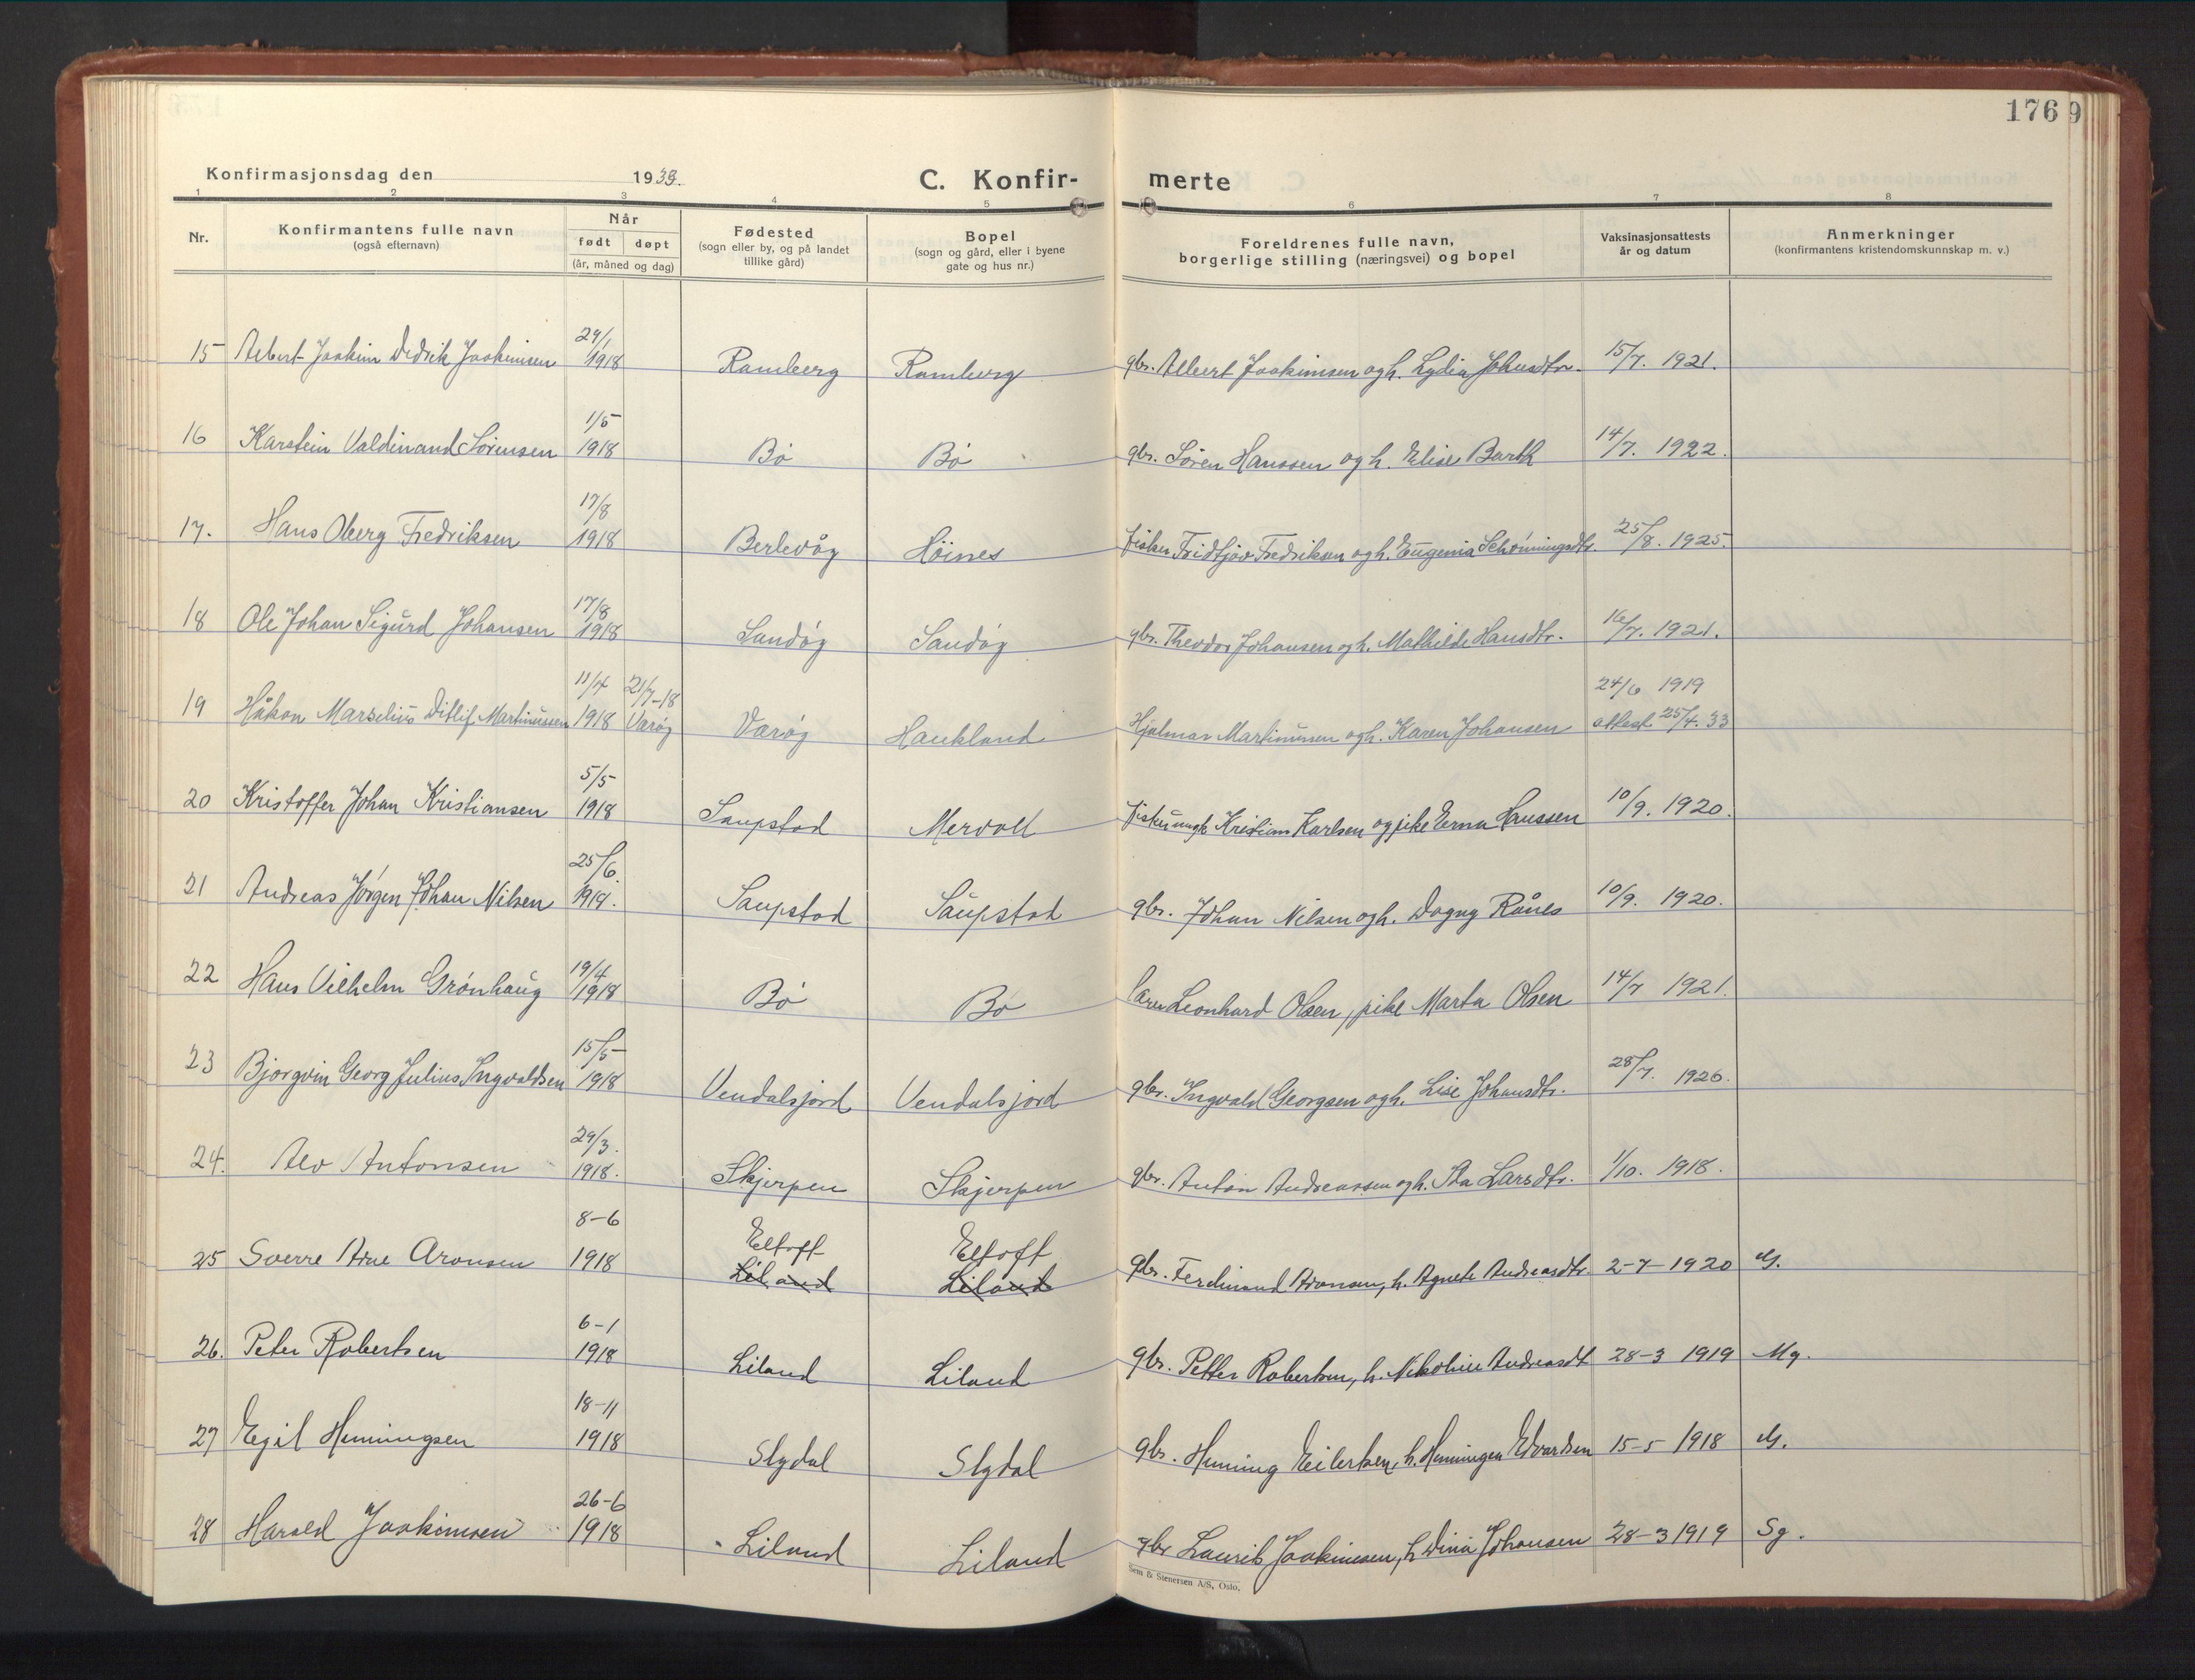 176 9
Konfirmasjonsdag den 1933. C. Konfir- merte
1 2 3 4 5 6 7 8
Nr. Konfirmantens fulle navn (også efternavn) Når født døpt (år, måned og dag) Fødested (sogn eller by, og på landet tillike gård) Bopel (sogn og gård, eller i byene gate og hus nr.) Foreldrenes fulle navn, borgerlige stilling (næringsvei) og bopel Vaksinasjonsattests år og datum Anmerkninger (konfirmantens kristendomskunnskap m. v.)
15 Albert Joakim Didrik Joakimsen 29/1 1918 Ramberg Ramberg gbr. Albert Joakimsen og h. Lydia Johansdtr. 15/7. 1921.
16 Karstein Valdinand Sørensen 1/5 1918 Bø Bø gbr. Søren Hanssen og h. Elise Barth 14/7. 1922.
17. Hans Oberg Fredriksen 17/8 1918 Berlevåg Höines fisker Fridtjov Fredriksen og h. Eugenia Schøningsdtr. 25/8. 1925.
18 Ole Johan Sigurd Johansen 17/8 1918 Sandøy Sandøy gbr. Theodor Johansen og h. Mathilde Hansdtr. 16/7. 1921.
19 Håkon Marselius Ditlif Martinussen 11/4 1918 21/7-18 Værøy Værøy Haukland Hjalmar Martinussen og h. Karen Johansen 24/6 1919 attest 25/4. 33
20 Kristoffer Johan Kristiansen 5/5 1918 Saupstad Mervoll fisker ungk Kristian Karlsen og pike Erna Hanssen 10/9. 1920.
21 Andreas Jørgen Johan Nilsen 25/6. 1918. Saupstad Saupstad gbr. Johan Nilsen og h. Dagny Rånes 10/9. 1920.
22 Hans Vilhelm Grønhaug 19/4 1918 Bø Bø Leonhard Olsen, pike Marta Olsen 14/7 1921.
23 Bjørgvin Georg Julius Ingvaldsen 15/5 1918 Vendalsjord Vendalsjord gbr. Ingvald Georgsen og h. Lise Johansdtr. 28/7. 1926.
24. Alv Antonsen 29/3. 1918. Skjerpen Skjerpen gbr. Anton Andreassen og h. Ida Larsdtr. 1/10. 1918.
25 Sverre Arne Aronsen 8-6 1918 Eltoft Liland Eltoft Liland gbr. Ferdinand Aronsen, h. Agnete Andreasdtr 2-7-1920 G.
26. Peter Robertsen 6-1 1918 Liland Liland gbr. Petter Robertsen, h. Nikoline Andreasdt 28-3 1919 Mg.
27 Egil Henningsen 18-11 1918 Slydal Slydal gbr. Henning Eilertsen, h. Henningea Edvardsen 15-5 1918 G.
28 Harald Joakimsen 26-6 1918 Liland Liland gbr Laurits Joakimsen, h Dina Johansen 28-3 1919 Sg.
Sem & Stenersen A/S, Oslo.